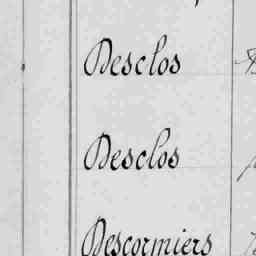 Desclos
Desclos
Descormiers